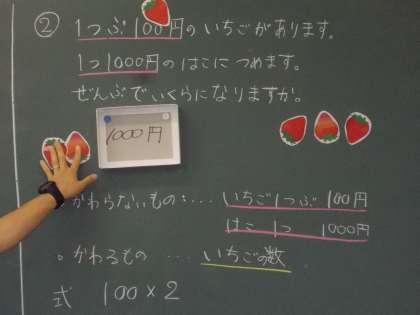 ② 1つぶ100円のいちごがあります。
1つ1000円のはこにつめます。
ぜんぶでいくらになりますか。
1000円
かわらないもの:… いちご1つぶ 100円
はこ 1つ 1000円
。かわるもの … いちごの数
式 100×2